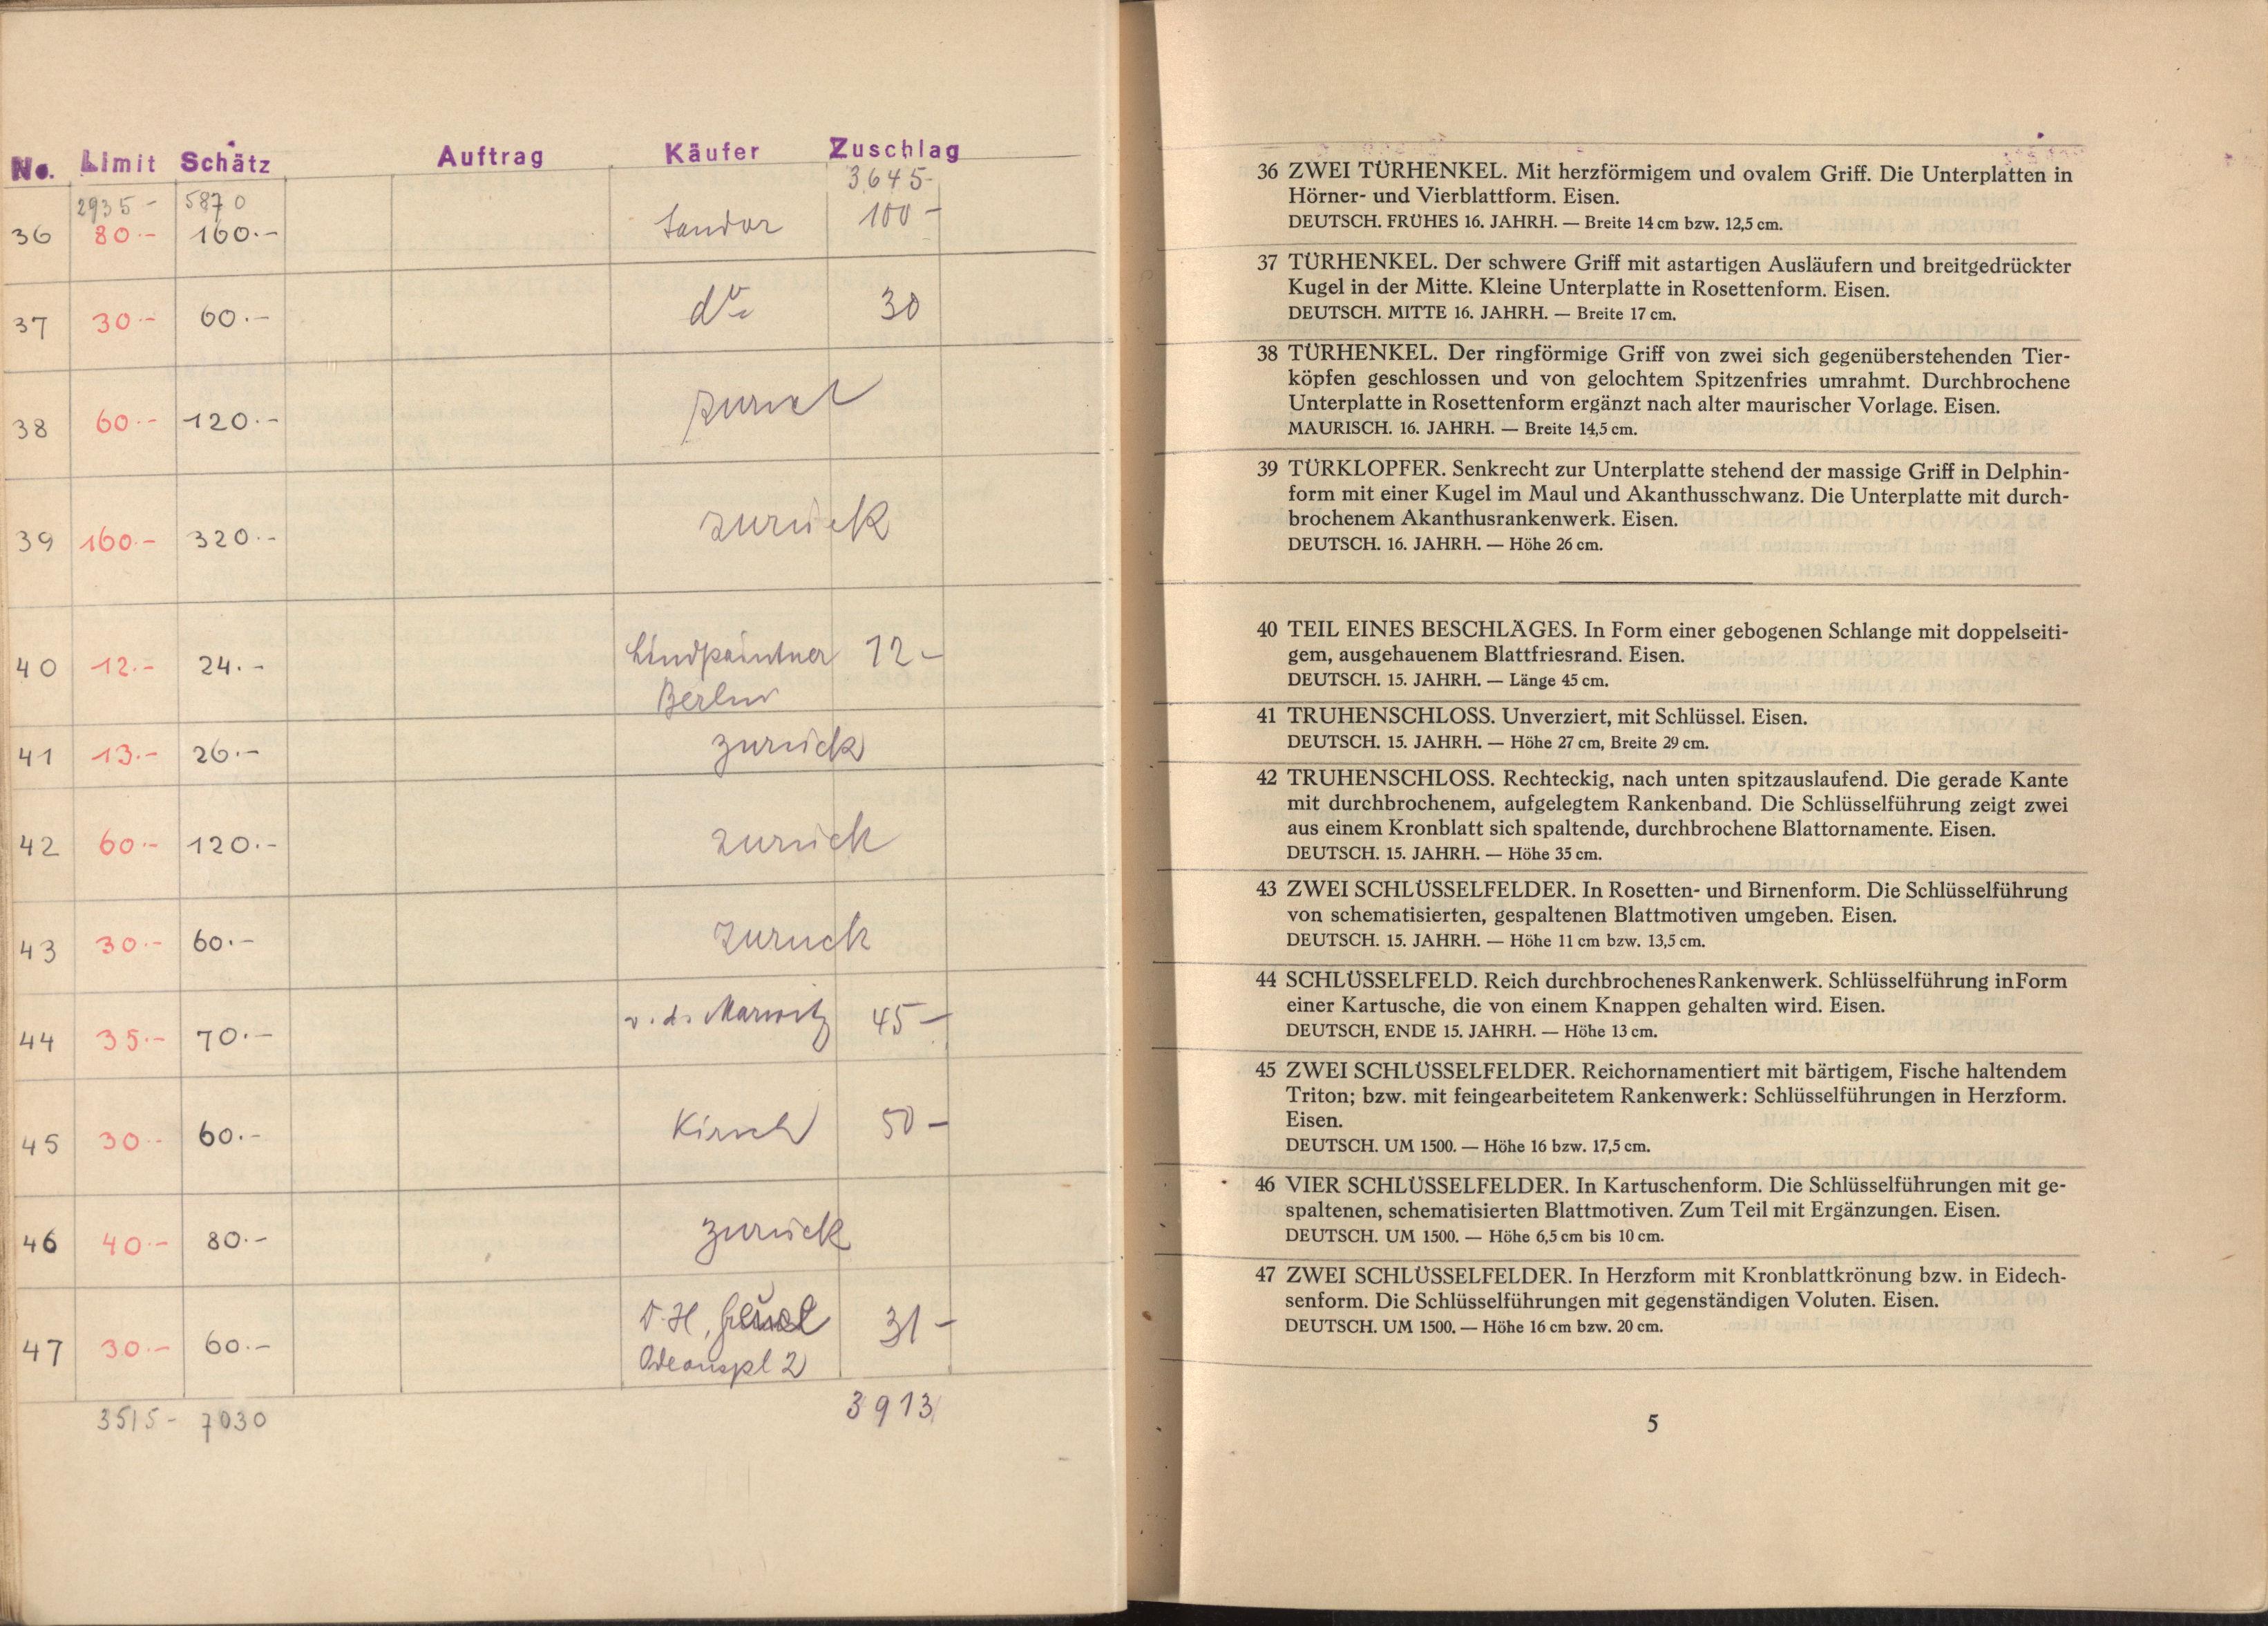 No. Limit Schätz Auftrag Käufer Zuschlag
2935- 5870 3645-
36 80.- 160.- Sandor 100-
37 30.- 60.- do 30
38 60.- 120.- zurück
39 160.- 320.- zurück
40 12.- 24.- Lindpaintner 12-
Berlin
41 13.- 26.- zurück
42 60.- 120.- zurück
43 30.- 60.- zuruck
44 35.- 70.- v. d. Marwitz 45-
45 30.- 60.- Kirsch 50-
46 40.- 80.- zurück
47 30.- 60.- D. H. 31-
Odeonspl 2
3515- 7030 3913
36 ZWEI TÜRHENKEL. Mit herzförmigem und ovalem Griff. Die Unterplatten in
Hörner- und Vierblattform. Eisen.
DEUTSCH. FRÜHES 16. JAHRH. — Breite 14 cm bzw. 12,5 cm.
37 TÜRHENKEL. Der schwere Griff mit astartigen Ausläufern und breitgedrückter
Kugel in der Mitte. Kleine Unterplatte in Rosettenform. Eisen.
DEUTSCH. MITTE 16. JAHRH. — Breite 17 cm.
38 TÜRHENKEL. Der ringförmige Griff von zwei sich gegenüberstehenden Tier-
köpfen geschlossen und von gelochtem Spitzenfries umrahmt. Durchbrochene
Unterplatte in Rosettenform ergänzt nach alter maurischer Vorlage. Eisen.
MAURISCH. 16. JAHRH. — Breite 14,5 cm.
39 TÜRKLOPFER. Senkrecht zur Unterplatte stehend der massige Griff in Delphin-
form mit einer Kugel im Maul und Akanthusschwanz. Die Unterplatte mit durch-
brochenem Akanthusrankenwerk. Eisen.
DEUTSCH. 16. JAHRH. — Höhe 26 cm.
40 TEIL EINES BESCHLÄGES. In Form einer gebogenen Schlange mit doppelseiti-
gem, ausgehauenem Blattfriesrand. Eisen.
DEUTSCH. 15. JAHRH. — Länge 45 cm.
41 TRUHENSCHLOSS. Unverziert, mit Schlüssel. Eisen.
DEUTSCH. 15. JAHRH. — Höhe 27 cm, Breite 29 cm.
42 TRUHENSCHLOSS. Rechteckig, nach unten spitzauslaufend. Die gerade Kante
mit durchbrochenem, aufgelegtem Rankenband. Die Schlüsselführung zeigt zwei
aus einem Kronblatt sich spaltende, durchbrochene Blattornamente. Eisen.
DEUTSCH. 15. JAHRH. — Höhe 35 cm.
43 ZWEI SCHLÜSSELFELDER. In Rosetten- und Birnenform. Die Schlüsselführung
von schematisierten, gespaltenen Blattmotiven umgeben. Eisen.
DEUTSCH. 15. JAHRH. — Höhe 11 cm bzw. 13,5 cm.
44 SCHLÜSSELFELD. Reich durchbrochenes Rankenwerk. Schlüsselführung in Form
einer Kartusche, die von einem Knappen gehalten wird. Eisen.
DEUTSCH, ENDE 15. JAHRH. — Höhe 13 cm.
45 ZWEI SCHLÜSSELFELDER. Reichornamentiert mit bärtigem, Fische haltendem
Triton; bzw. mit feingearbeitetem Rankenwerk: Schlüsselführungen in Herzform.
Eisen.
DEUTSCH. UM 1500. — Höhe 16 bzw. 17,5 cm.
46 VIER SCHLÜSSELFELDER. In Kartuschenform. Die Schlüsselführungen mit ge-
spaltenen, schematisierten Blattmotiven. Zum Teil mit Ergänzungen. Eisen.
DEUTSCH. UM 1500. — Höhe 6,5 cm bis 10 cm.
47 ZWEI SCHLÜSSELFELDER. In Herzform mit Kronblattkrönung bzw. in Eidech-
senform. Die Schlüsselführungen mit gegenständigen Voluten. Eisen.
DEUTSCH. UM 1500. — Höhe 16 cm bzw. 20 cm.
5